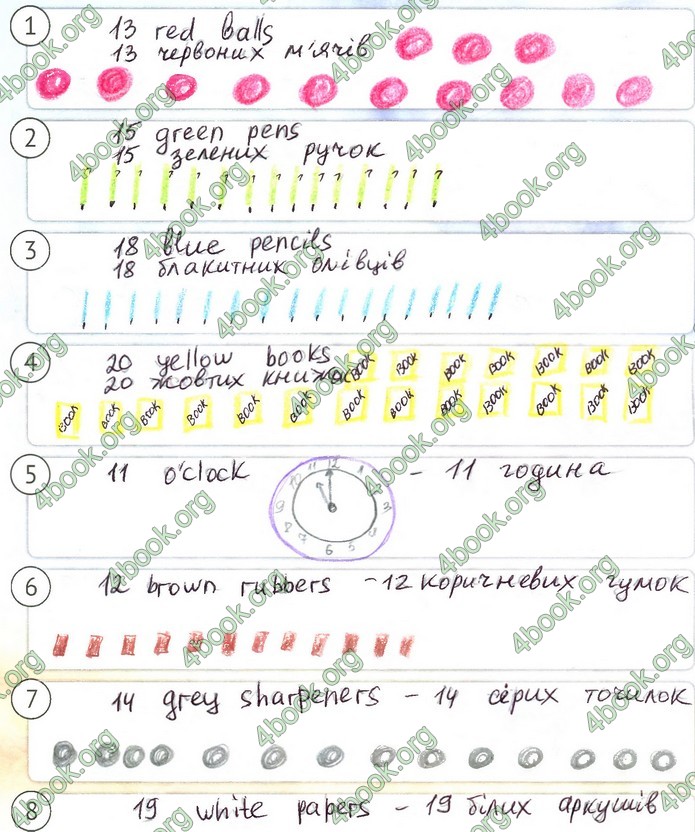 1
13 red balls
13 червоних м'ячів
2
15 green pens
15 зелених ручок
3
18 blue pencils
18 блакитних олівців
4
20 yellow books
20 жовтих книжок
BOOK BOOK BOOK BOOK BOOK BOOK BOOK
BOOK BOOK BOOK BOOK BOOK BOOK BOOK BOOK BOOK BOOK BOOK BOOK BOOK
5
11 o'clock - 11 година
6
12 brown rubbers - 12 коричневих гумок
7
14 grey sharpeners - 14 сірих точилок
8
19 white papers - 19 білих аркушів
4book.org